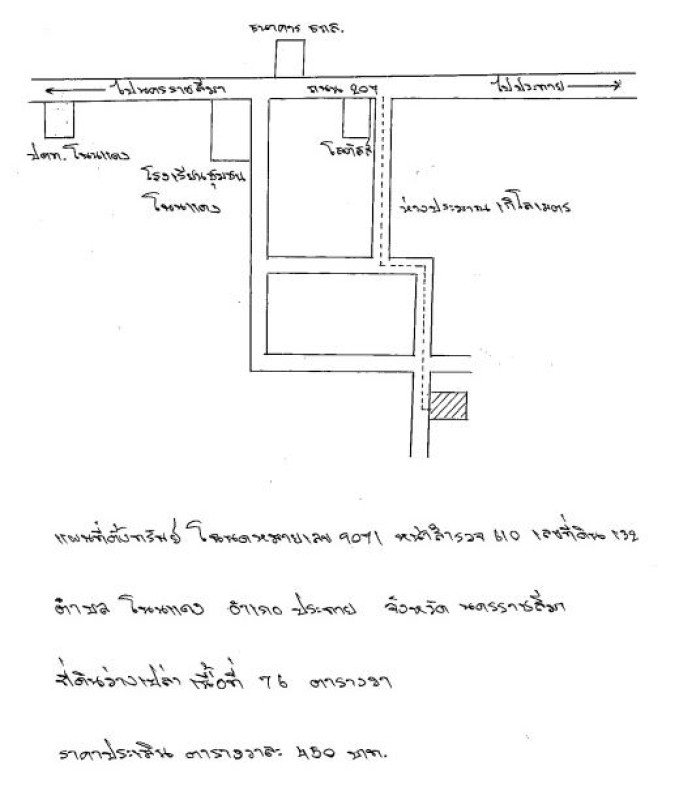 ธนาคาร ธกส.
ไปนครราชสีมา ถนน 207 ไปประทาย
ปตท. โนนแดง
โรงเรียนชุมชน
โนนแดง
โลตัสส์
ห่างประมาณ 1 กิโลเมตร
แผนที่ตั้งทรัพย์ โฉนดหมายเลข 9071 หน้าสำรวจ 610 เลขที่ดิน 132
ตำบล โนนแดง อำเภอ ประทาย จังหวัด นครราชสีมา
ที่ดินว่างเปล่า เนื้อที่ 76 ตารางวา
ราคาประเมิน ตารางวาละ 450 บาท.